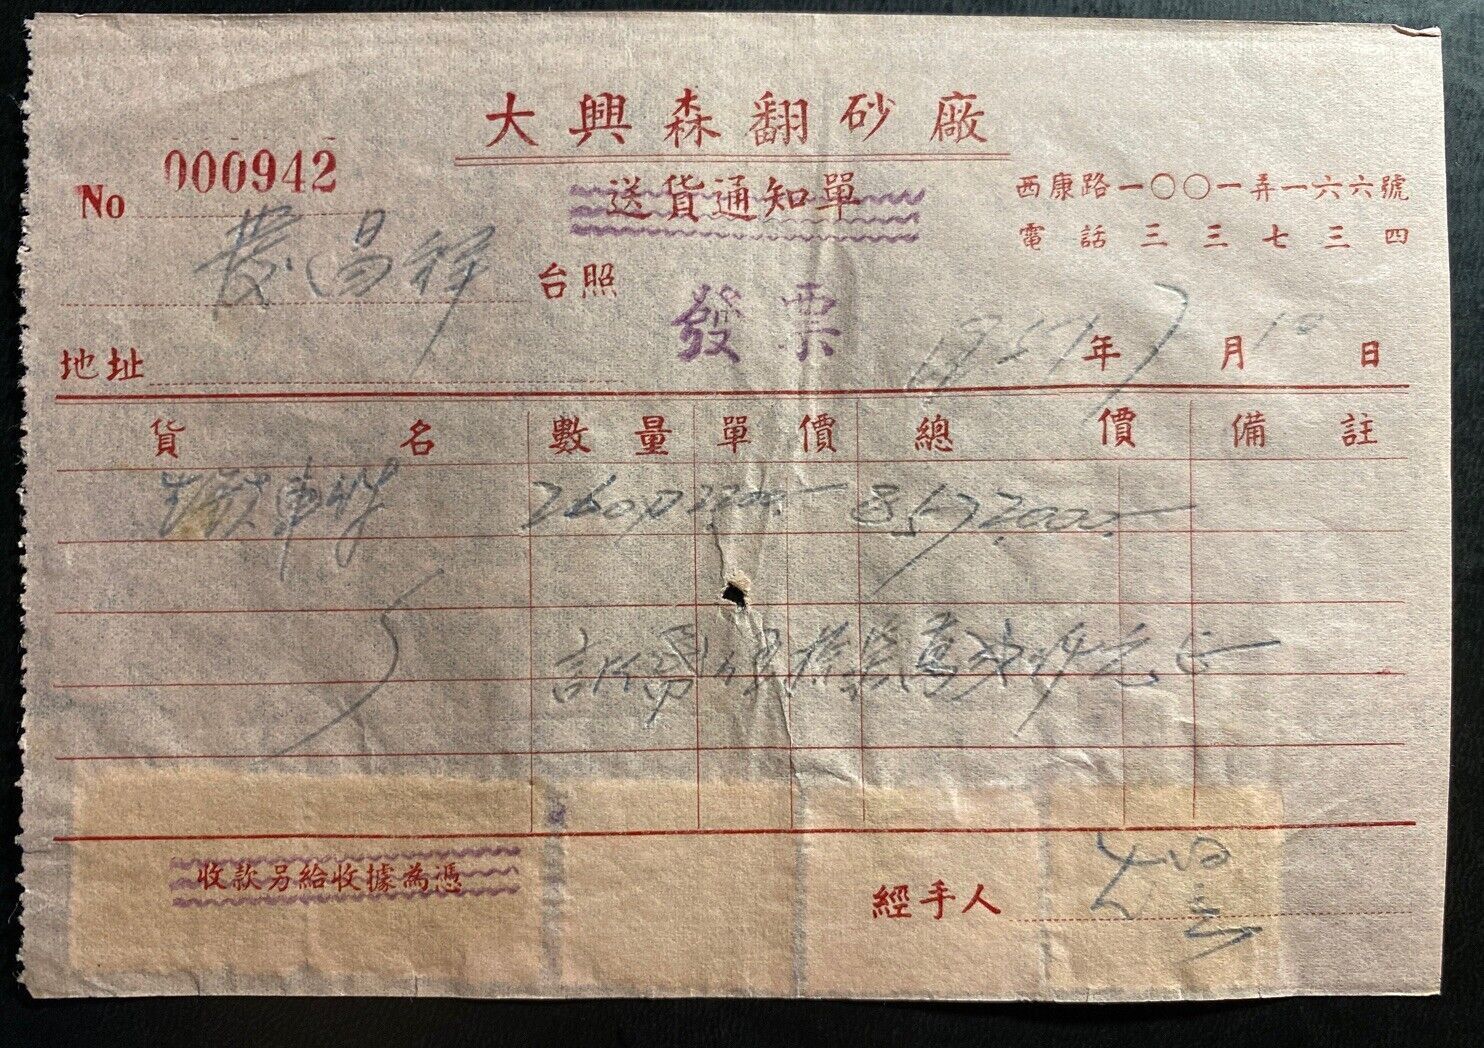 大興森翻砂廠
送貨通知單
西康路一〇〇一弄一六六號
電話三三七三四
No 000942
昌祥 台照
發票
地址
195 年 7 月 10 日
貨名 數量 單價 總價 備註
生鉄車件 260
萬 元正
收款另給收據為憑
經手人